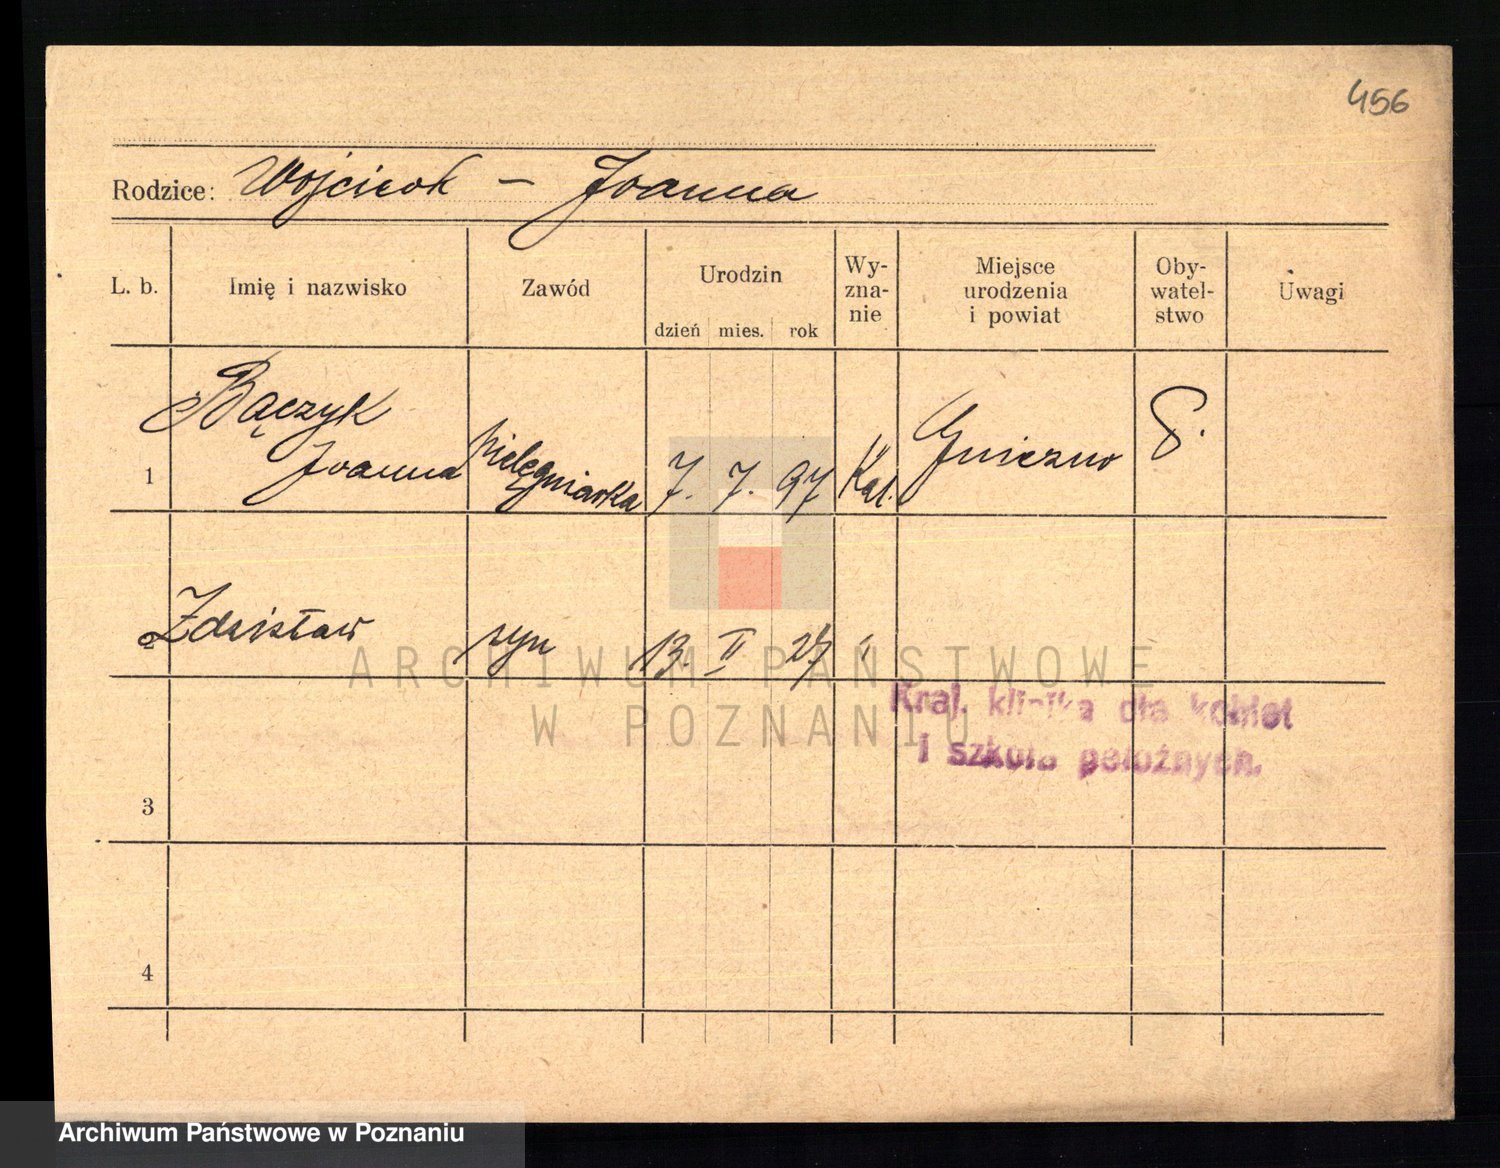 456
Rodzice: Wojciech – Joanna
L. b. Imię i nazwisko Zawód Urodzin Wy- zna- nie Miejsce urodzenia i powiat Oby- watel- stwo Uwagi
dzień mies. rok
Bączyk
1 Joanna pielęgniarka 7. 7. 97 Kat. Gniezno
2 Zdzisław syn 13. II 27 "
Kraj. klinika dla kobiet
i szkoła położnych.
3
4
ARCHIWUM PAŃSTWOWE
W POZNANIU
Archiwum Państwowe w Poznaniu